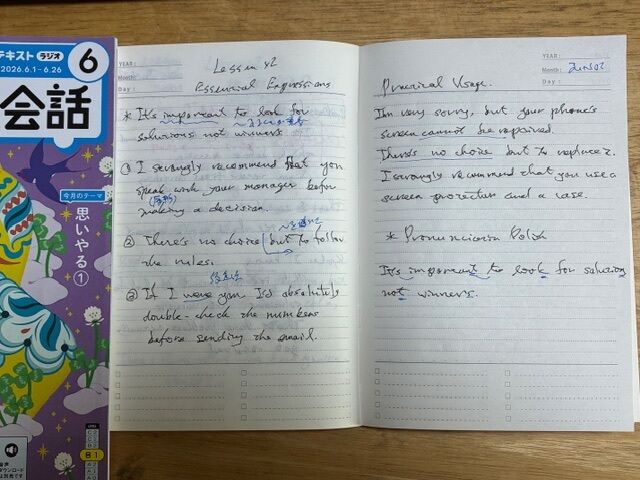 テキスト ラジオ
2026.6.1-6.26
6
会話
今月のテーマ
思いやる①
B1
YEAR:
Month:
Day:
Lesson 42
Essential Expressions
* It's important to look for
solutions not winners
① I strongly recommend that you
speak with your manager before
(原形)
making a decision.
② There's no choice but to follow
the rules.
③ If I were you I'd absolutely
double-check the numbers
before sending the email.
YEAR:
Month:
Day:
Practical Usage.
I'm very sorry, but your phone's
screen cannot be repaired.
There's no choice but to replace it.
I strongly recommend that you use a
screen protector and a case.
* Pronunciation Polish
It's important to look for solutions
not winners.